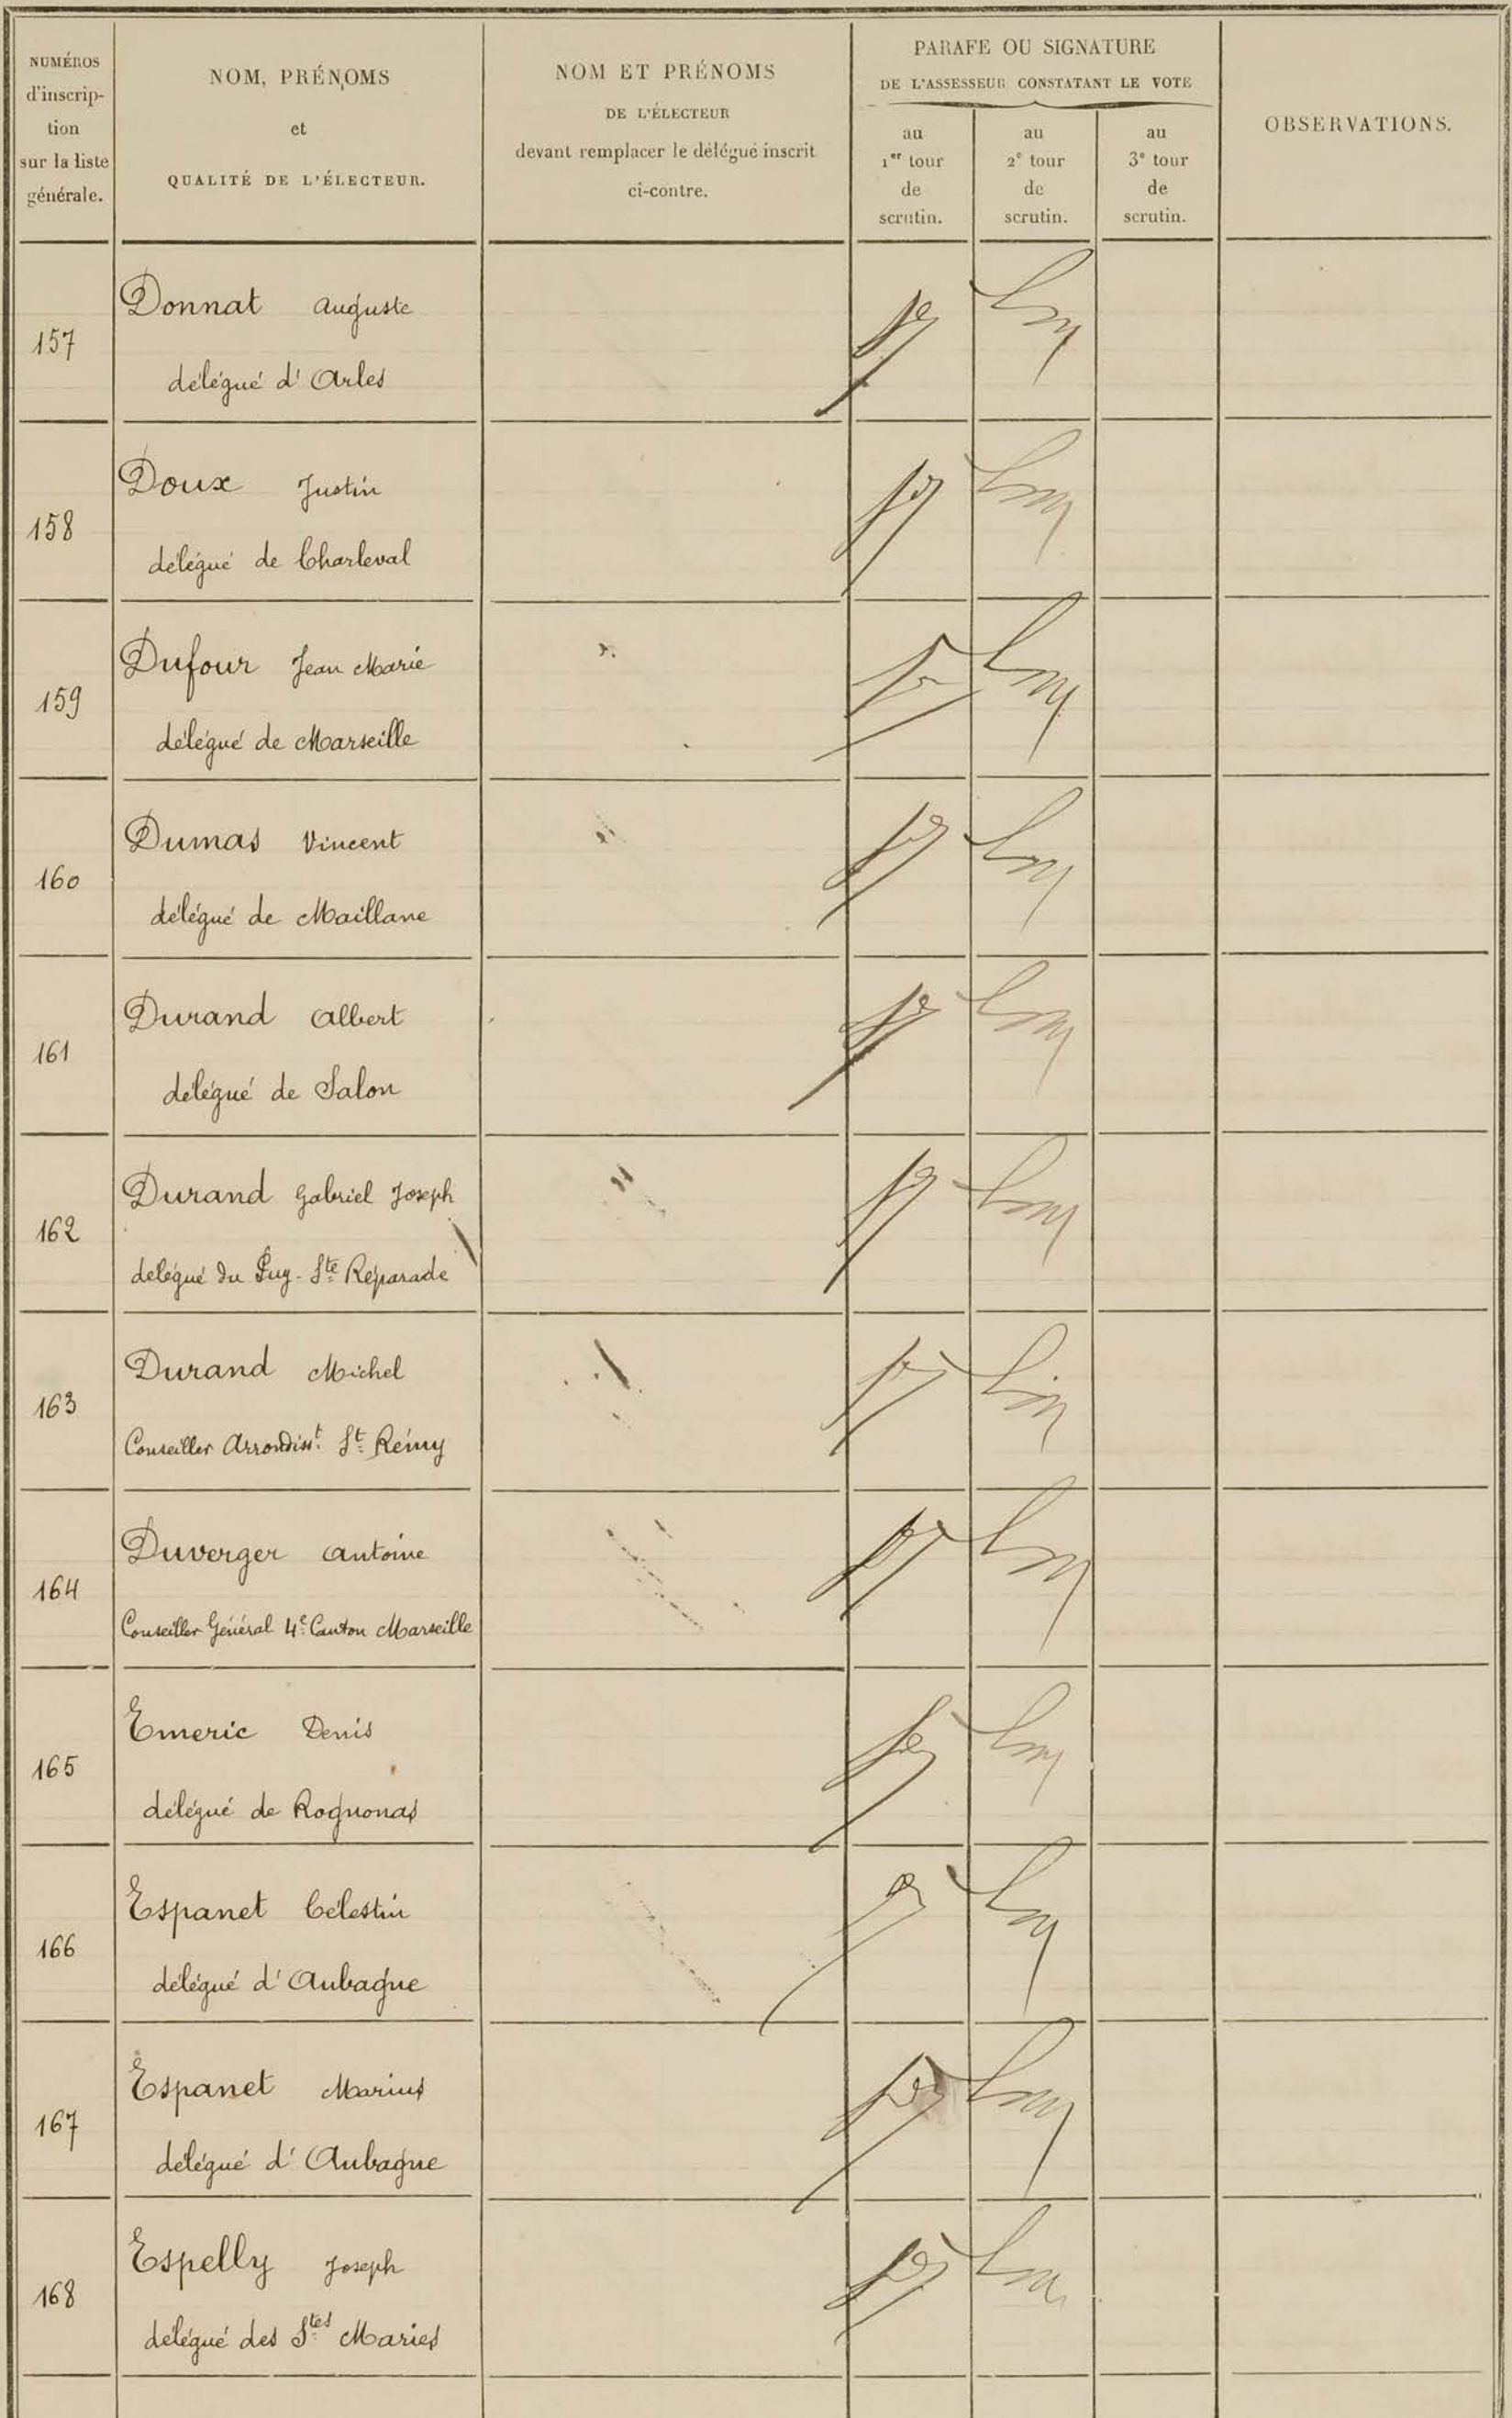 NUMÉROS
d'inscrip-
tion
sur la liste
générale.
NOM, PRÉNOMS
et
QUALITÉ DE L'ÉLECTEUR.
NOM ET PRÉNOMS
DE L'ÉLECTEUR
devant remplacer le délégué inscrit
ci-contre.
PARAFE OU SIGNATURE
DE L'ASSESSEUR CONSTATANT LE VOTE
au
1er tour
de
scrutin.
au
2e tour
de
scrutin.
au
3e tour
de
scrutin.
OBSERVATIONS.
157
Donnat Auguste
délégué d'Arles
158
Doux Justin
délégué de Charleval
159
Dufour Jean Marie
délégué de Marseille
160
Dumas Vincent
délégué de Maillane
161
Durand Albert
délégué de Salon
162
Durand Gabriel Joseph
délégué du Puy-Ste Réparade
163
Durand Michel
Conseiller Arrondisst. St. Rémy
164
Duverger Antoine
Conseiller Général 4e. Canton Marseille
165
Emeric Denis
délégué de Rognonas
166
Espanet Célestin
délégué d'Aubagne
167
Espanet Marius
délégué d'Aubagne
168
Espelly Joseph
délégué des Stes Maries